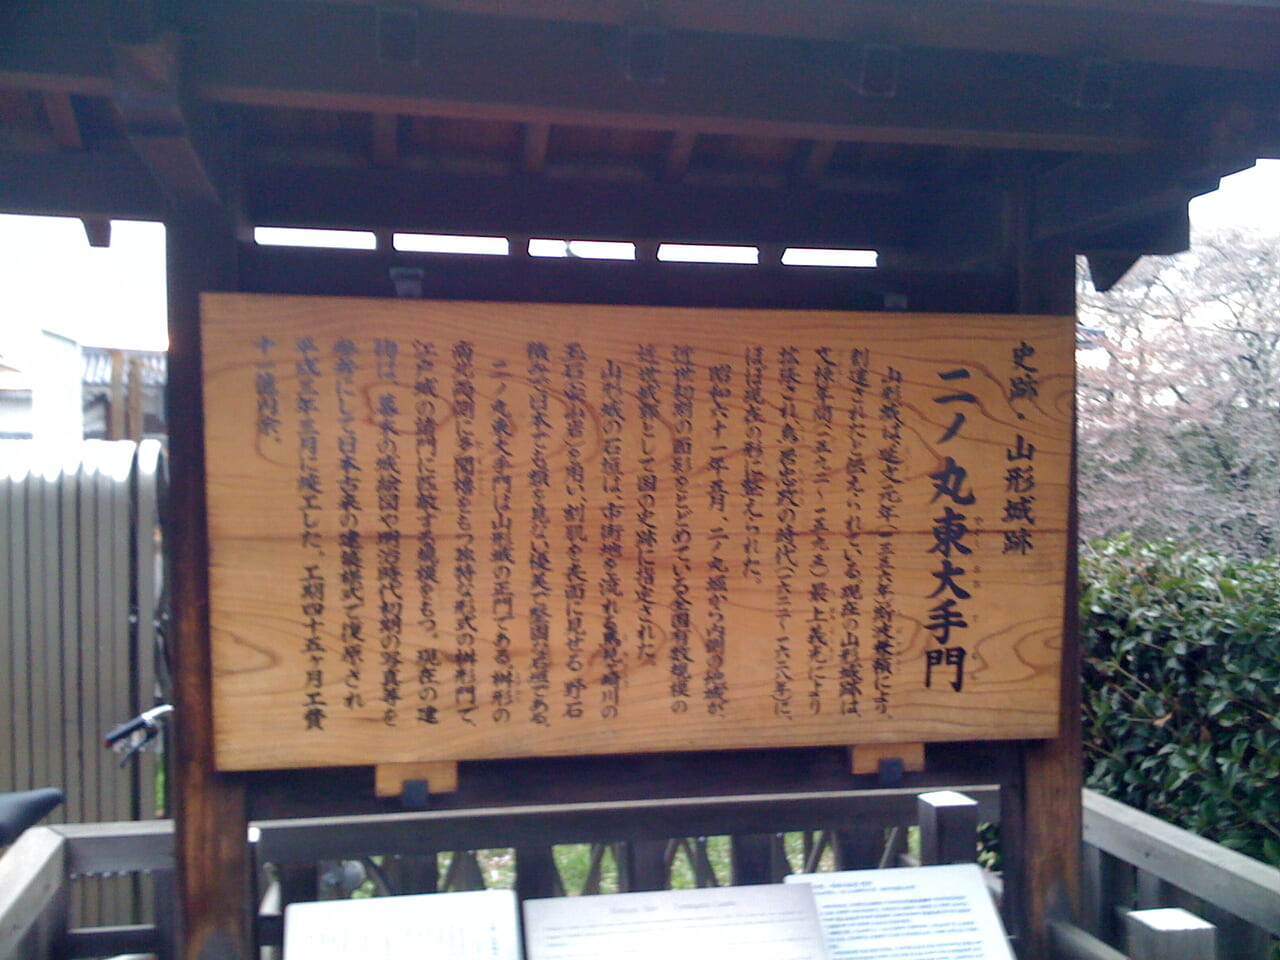 史跡・山形城跡
二ノ丸東大手門
山形城は延文元年(一三五六年)斯波兼頼により、
創建されたと伝えられている。現在の山形城跡は、
文禄年間(一五九二~一五九五)最上義光により
拡張され、鳥居忠政の時代(一六二二~一六二八年)に、
ほぼ現在の形に整えられた。
昭和六十一年五月、二ノ丸堀から内側の地域が、
近世初期の面影をとどめている全国有数規模の
近世城郭として国の史跡に指定された。
山形城の石垣は、市街地を流れる馬見ヶ崎川の
玉石(安山岩)を用い、割肌を表面に見せる野石
積みで日本でも類を見ない優美で堅固な石垣である。
二ノ丸東大手門は山形城の正門である。桝形の
南北両側に多聞櫓をもつ独特な形式の桝形門で、
江戸城の諸門に匹敵する規模をもつ。現在の建
物は、幕末の城絵図や明治時代初期の写真等を
参考にして日本古来の建築様式で復原され
平成三年三月に竣工した。工期四十五ヶ月工費
十一億円余。